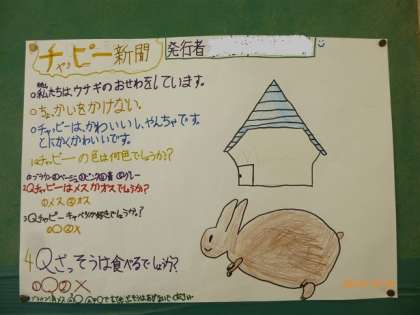 チャッピー新聞
発行者
○私たちは、ウサギのおせわをしています。
○ちょっかいをかけない。
○チャッピーは、かわいいし、やんちゃです。
とにかくかわいです。
1Qチャッピーの色は何色でしょうか?
①ブラウン②ベージュ③ピンク④青⑤グレー
2Qチャッピーはメスかオスでしょうか?
①メス②オス
3Qチャッピーキャベツが好きでしょうか?
①○②×
4Qざっそうは食べるでしょうか?
①○②×